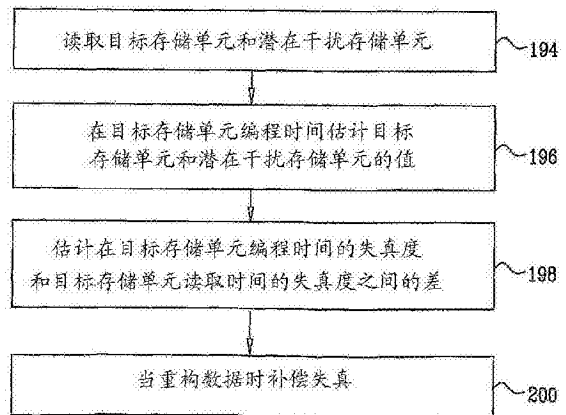 读取目标存储单元和潜在干扰存储单元
194
在目标存储单元编程时间估计目标
存储单元和潜在干扰存储单元的值
196
估计在目标存储单元编程时间的失真度
和目标存储单元读取时间的失真度之间的差
198
当重构数据时补偿失真
200